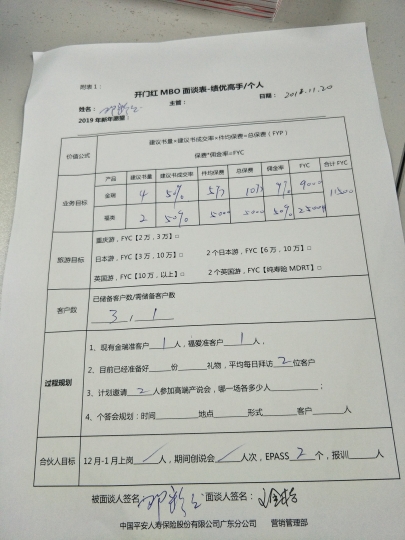 附表1：
开门红 MBO 面谈表-绩优高手/个人
姓名： 主管： 日期： 2018.11.20
2019年新年愿望：
价值公式
建议书量×建议书成交率×件均保费=总保费（FYP）
保费*佣金率=FYC
业务目标
产品 建议书量 建议书成交率 件均保费 总保费 佣金率 FYC 合计 FYC
金瑞 4 50% 5万 10万 9% 9000 11500
福类 2 50% 5000 5000 50% 2500
旅游目标
重庆游，FYC【2万，3万】□
日本游，FYC【3万，10万】□ 2个日本游，FYC【6万，10万】□
英国游，FYC【10万，以上】□ 2个英国游，FYC【纯寿险 MDRT】□
客户数
已储备客户数/需储备客户数
3，1
过程规划
1、现有金瑞准客户 1 人，福爱准客户 1 人，
2、目前已经准备好 份 礼物，平均每日拜访 2 位客户
3、计划邀请 2 人参加高端产说会，哪一场各多少人 ；
4、个答会规划：时间 地点 形式 客户 人
合伙人目标
12月-1月上岗 / 人，期间创说会 / 人次，EPASS 2 个，报训 人
被面谈人签名： 面谈人签名：
中国平安人寿保险股份有限公司广东分公司 营销管理部